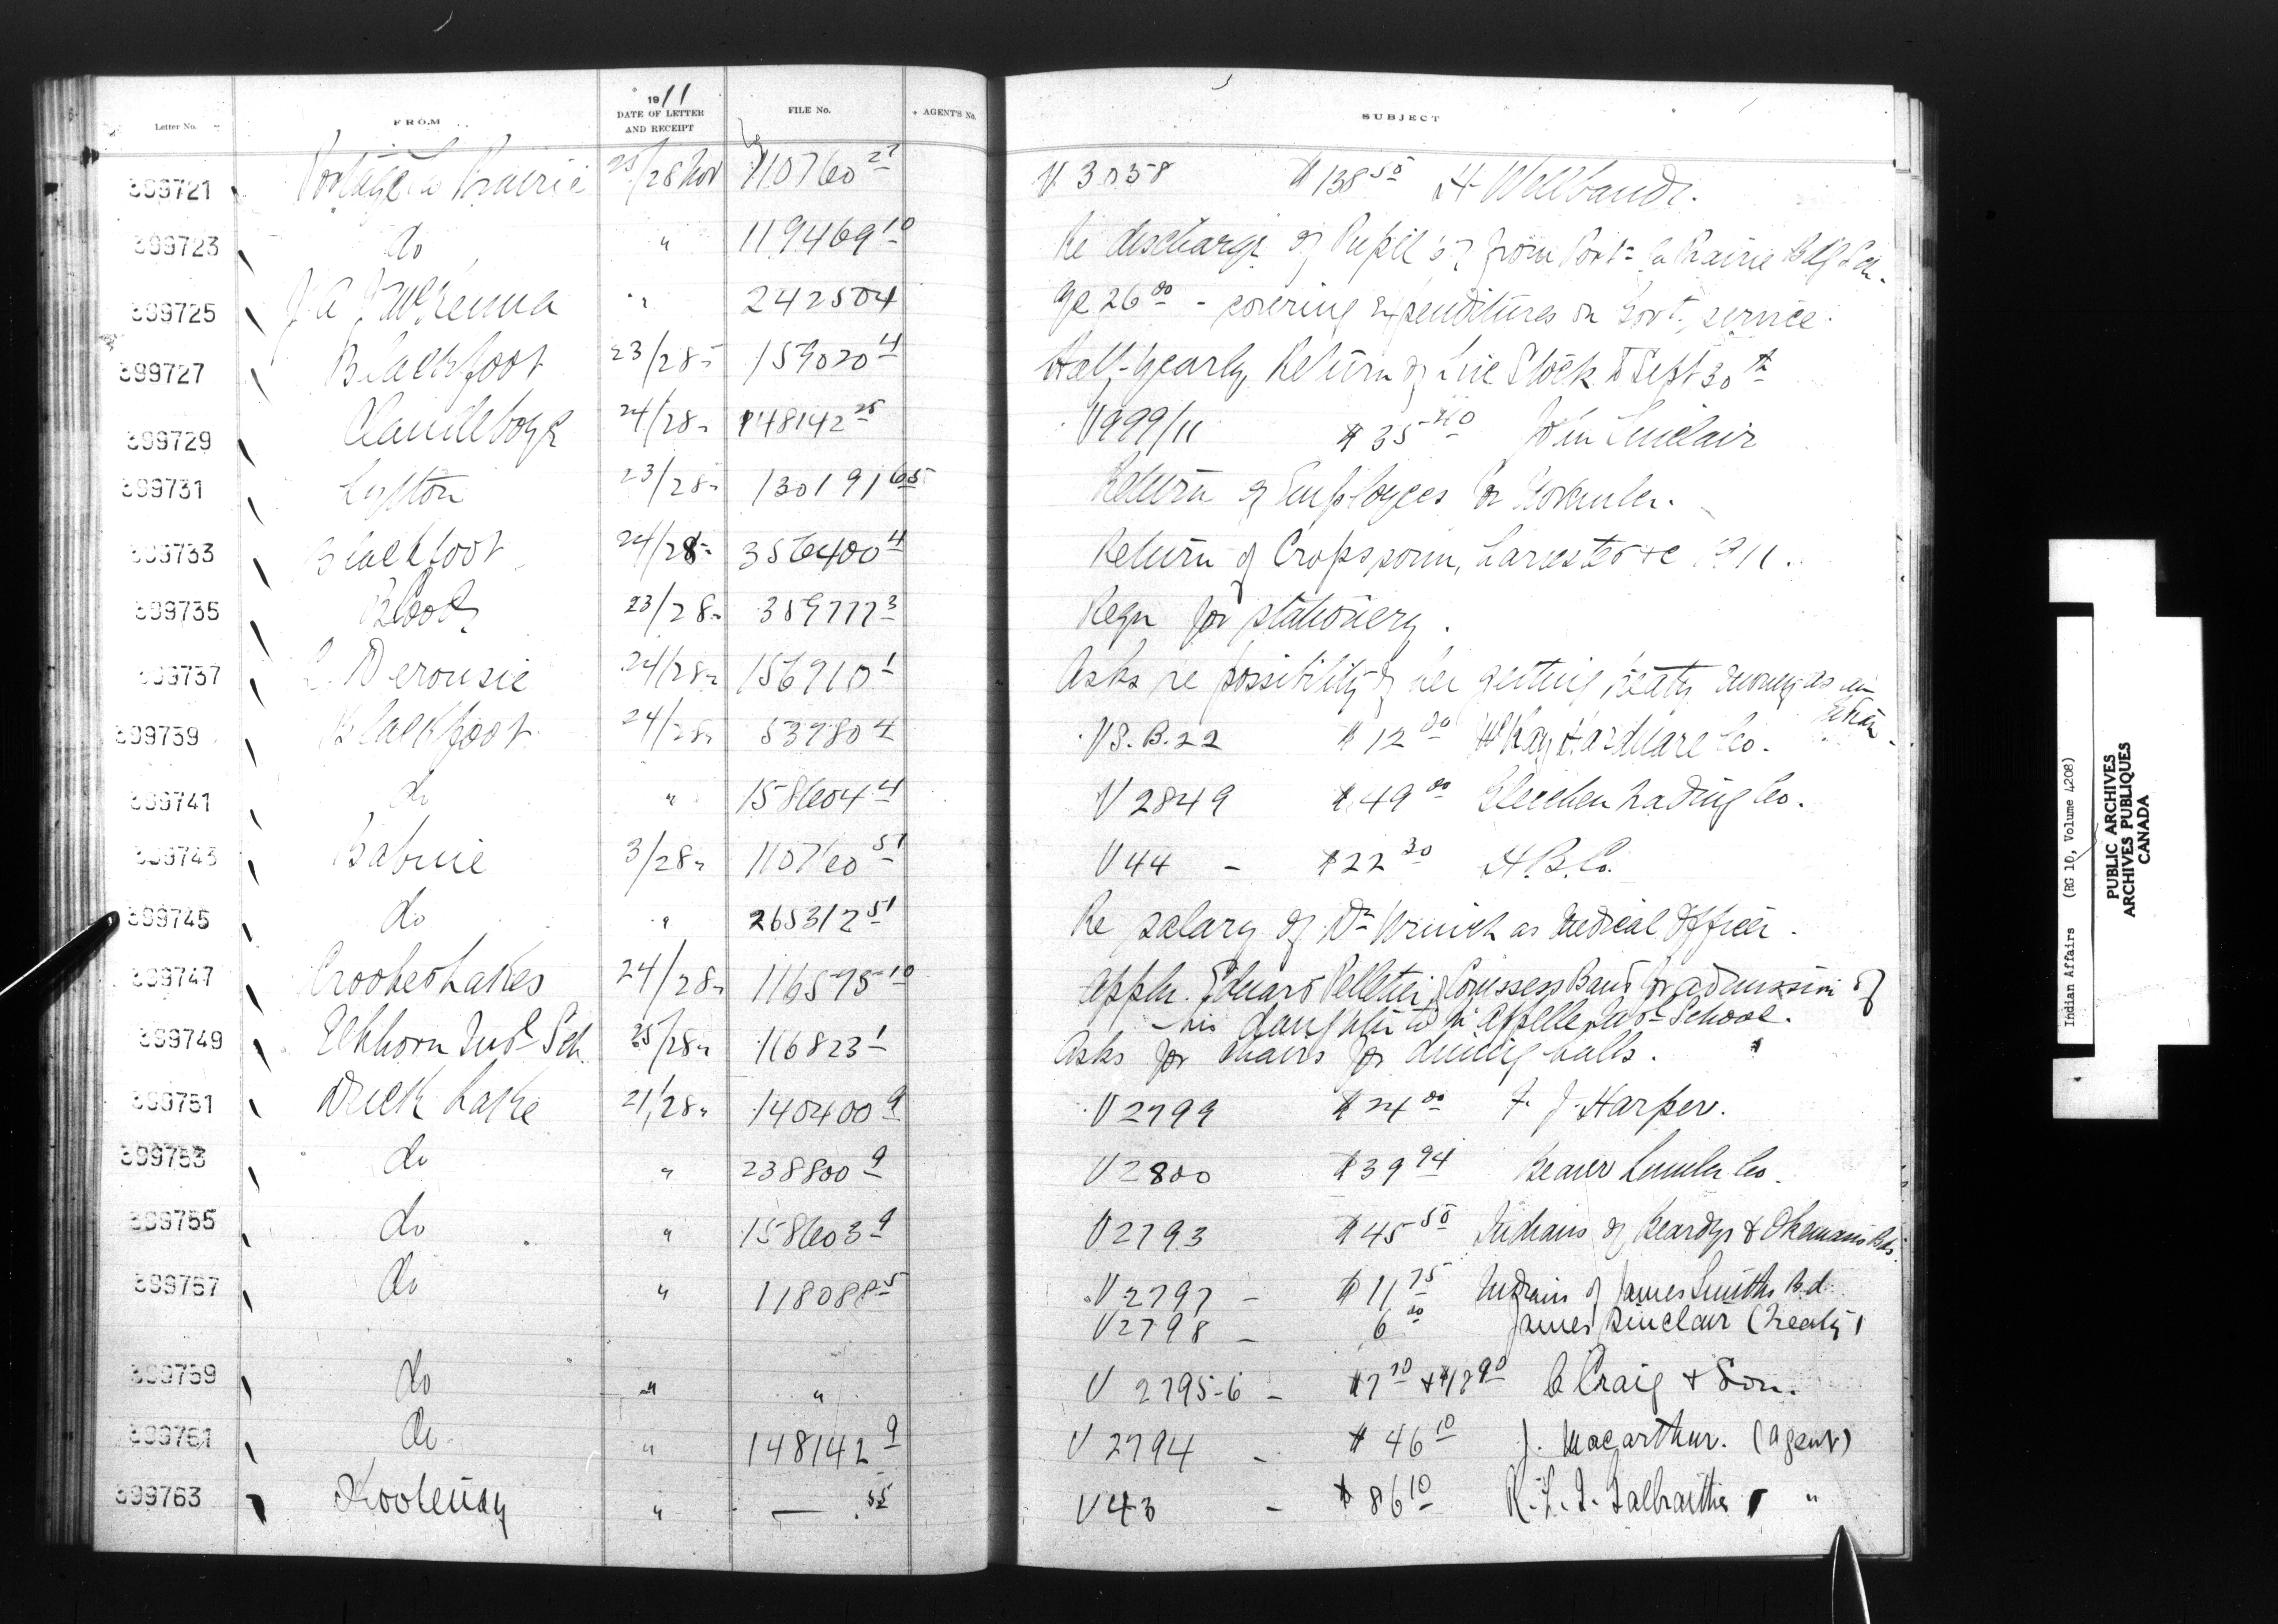 1911
Letter No. FROM DATE OF LETTER AND RECEIPT FILE No. AGENT'S No. SUBJECT
399721 Portage la Prairie 25/28 Nov 110760 27 V 3058 $138 50 H Wellband.
399723 do " 119469 10 Re discharge of Pupil from Port la Prairie Bdg Sch.
399725 J A J McKenna " 242504 26 00 - covering expenditures on Govt. service.
399727 Blackfoot 23/28 " 159020 4 Half-yearly Return of Live Stock to Sept 30th
399729 Clandeboye 24/28 " 148142 25 V 999/11 $35 40 Sinclair
399731 Lytton 23/28 " 130191 65 Return of Employees for November.
399733 Blackfoot 24/28 " 356400 4 Return of Crops sown, harvested &c 1911.
399735 Blood 23/28 " 359777 3 Reqn for stationery.
399737 L. Derousie 24/28 " 156910 1 Asks re possibility of her getting treaty money as an
Indian.
399739 Blackfoot 24/28 " 539804 VS. B. 22 $12 00 McKay Hardware Co.
399741 do " 158604 4 V 2849 $49 00 Gleichen Trading Co.
399743 Babine 3/28 " 110760 51 V 44 - $22 30 H. B. Co.
399745 do " 265312 51 Re salary of Dr Wrinch as Medical Officer.
399747 Crooked Lakes 24/28 " 116575 10 Appln. Edward Pelletier, Cowessess Band for admission of
his daughter to Qu'Appelle Indl School.
399749 Elkhorn Indl Sch. 25/28 " 116823 1 Asks for chairs for dining halls.
399751 Duck Lake 21/28 " 140400 9 V 2799 $24 00 F. J. Harper.
399753 do " 238800 9 V 2800 $39 94 Beaver Lumber Co.
399755 do " 158603 9 V 2793 $45 50 Indians of Beardys & Okemasis Bds.
399757 do " 118088 5 V 2797 - $11 75 Indians of James Smiths Bd.
V 2798 - 6 00 James Sinclair (Treaty)
399759 do " " V 2795-6 - $7 70 + $17 90 C Craig & Son.
399761 do " 148142 9 V 2794 - $46 10 J. Macarthur. (Agent)
399763 Kootenay " — 55 V 43 - $86 10 R. L. T. Galbraith "
Indian Affairs (RG 10, Volume 4208)
PUBLIC ARCHIVES
ARCHIVES PUBLIQUES
CANADA